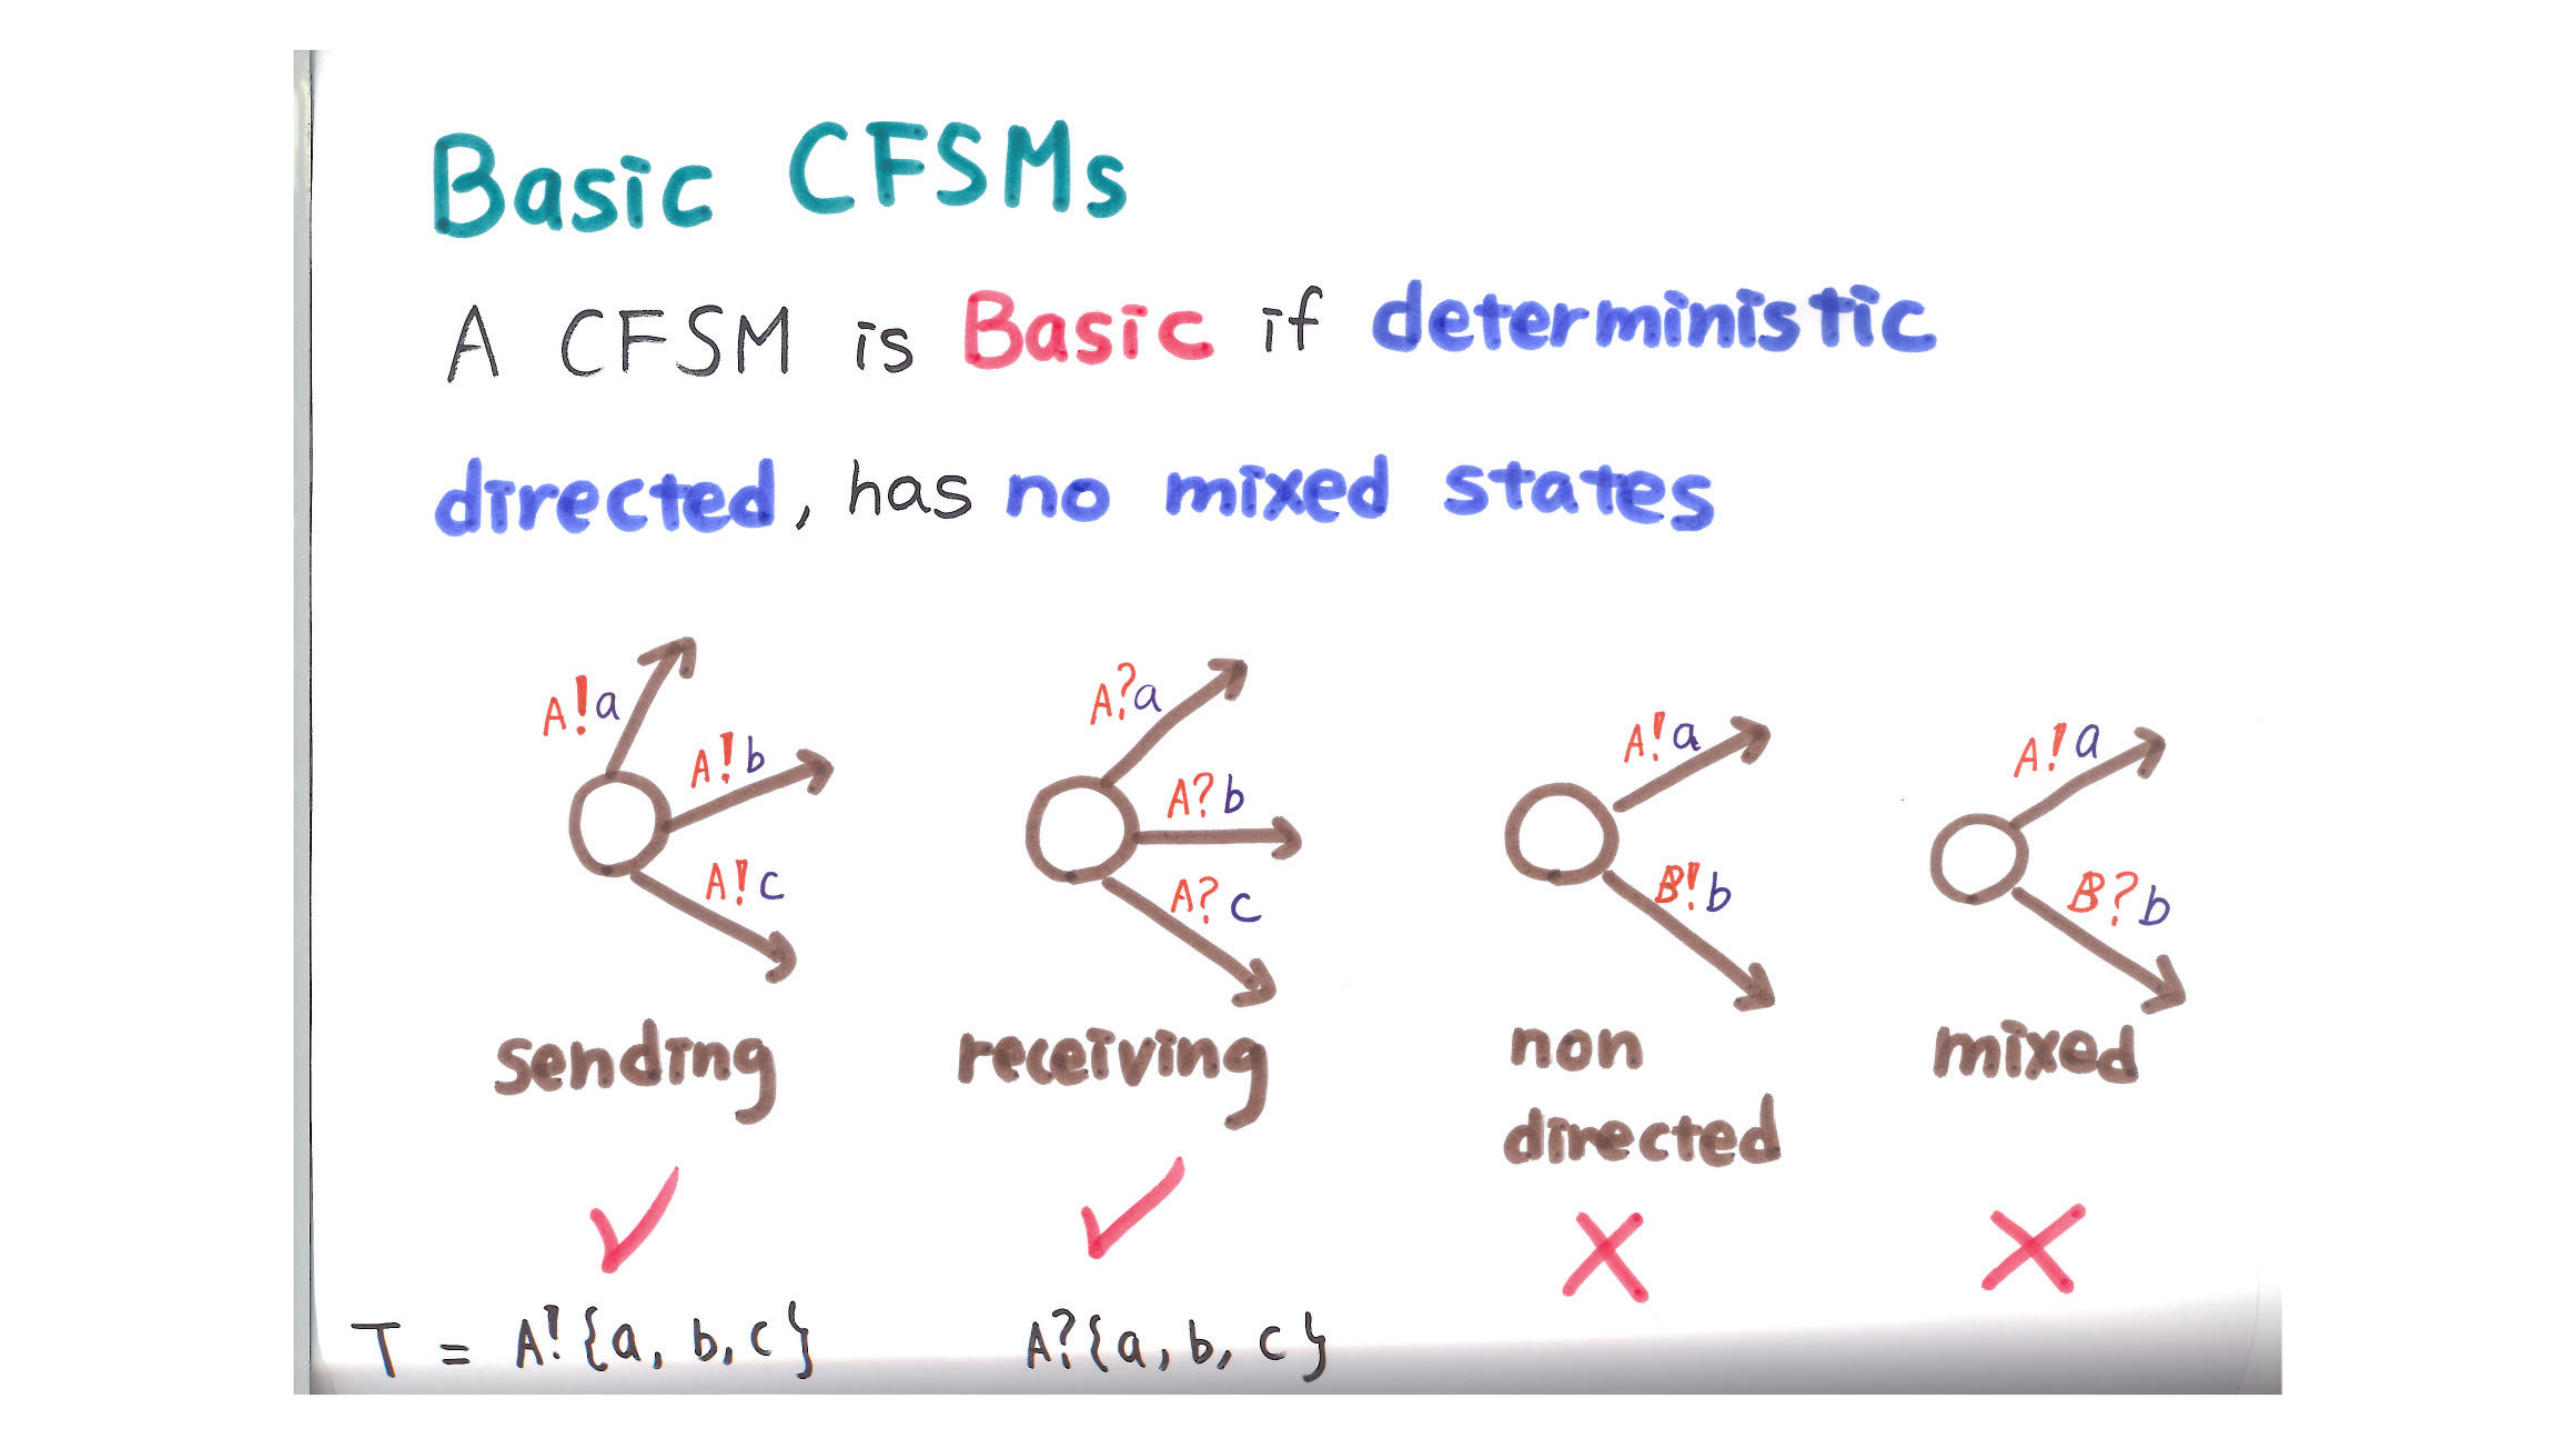 Basic CFSMs
A CFSM is Basic if deterministic
directed, has no mixed states
A!a
A!b
A!c
sending
A?a
A?b
A?c
receiving
A!a
B!b
non
directed
A!a
B?b
mixed
T = A!{a, b, c}
A?{a, b, c}